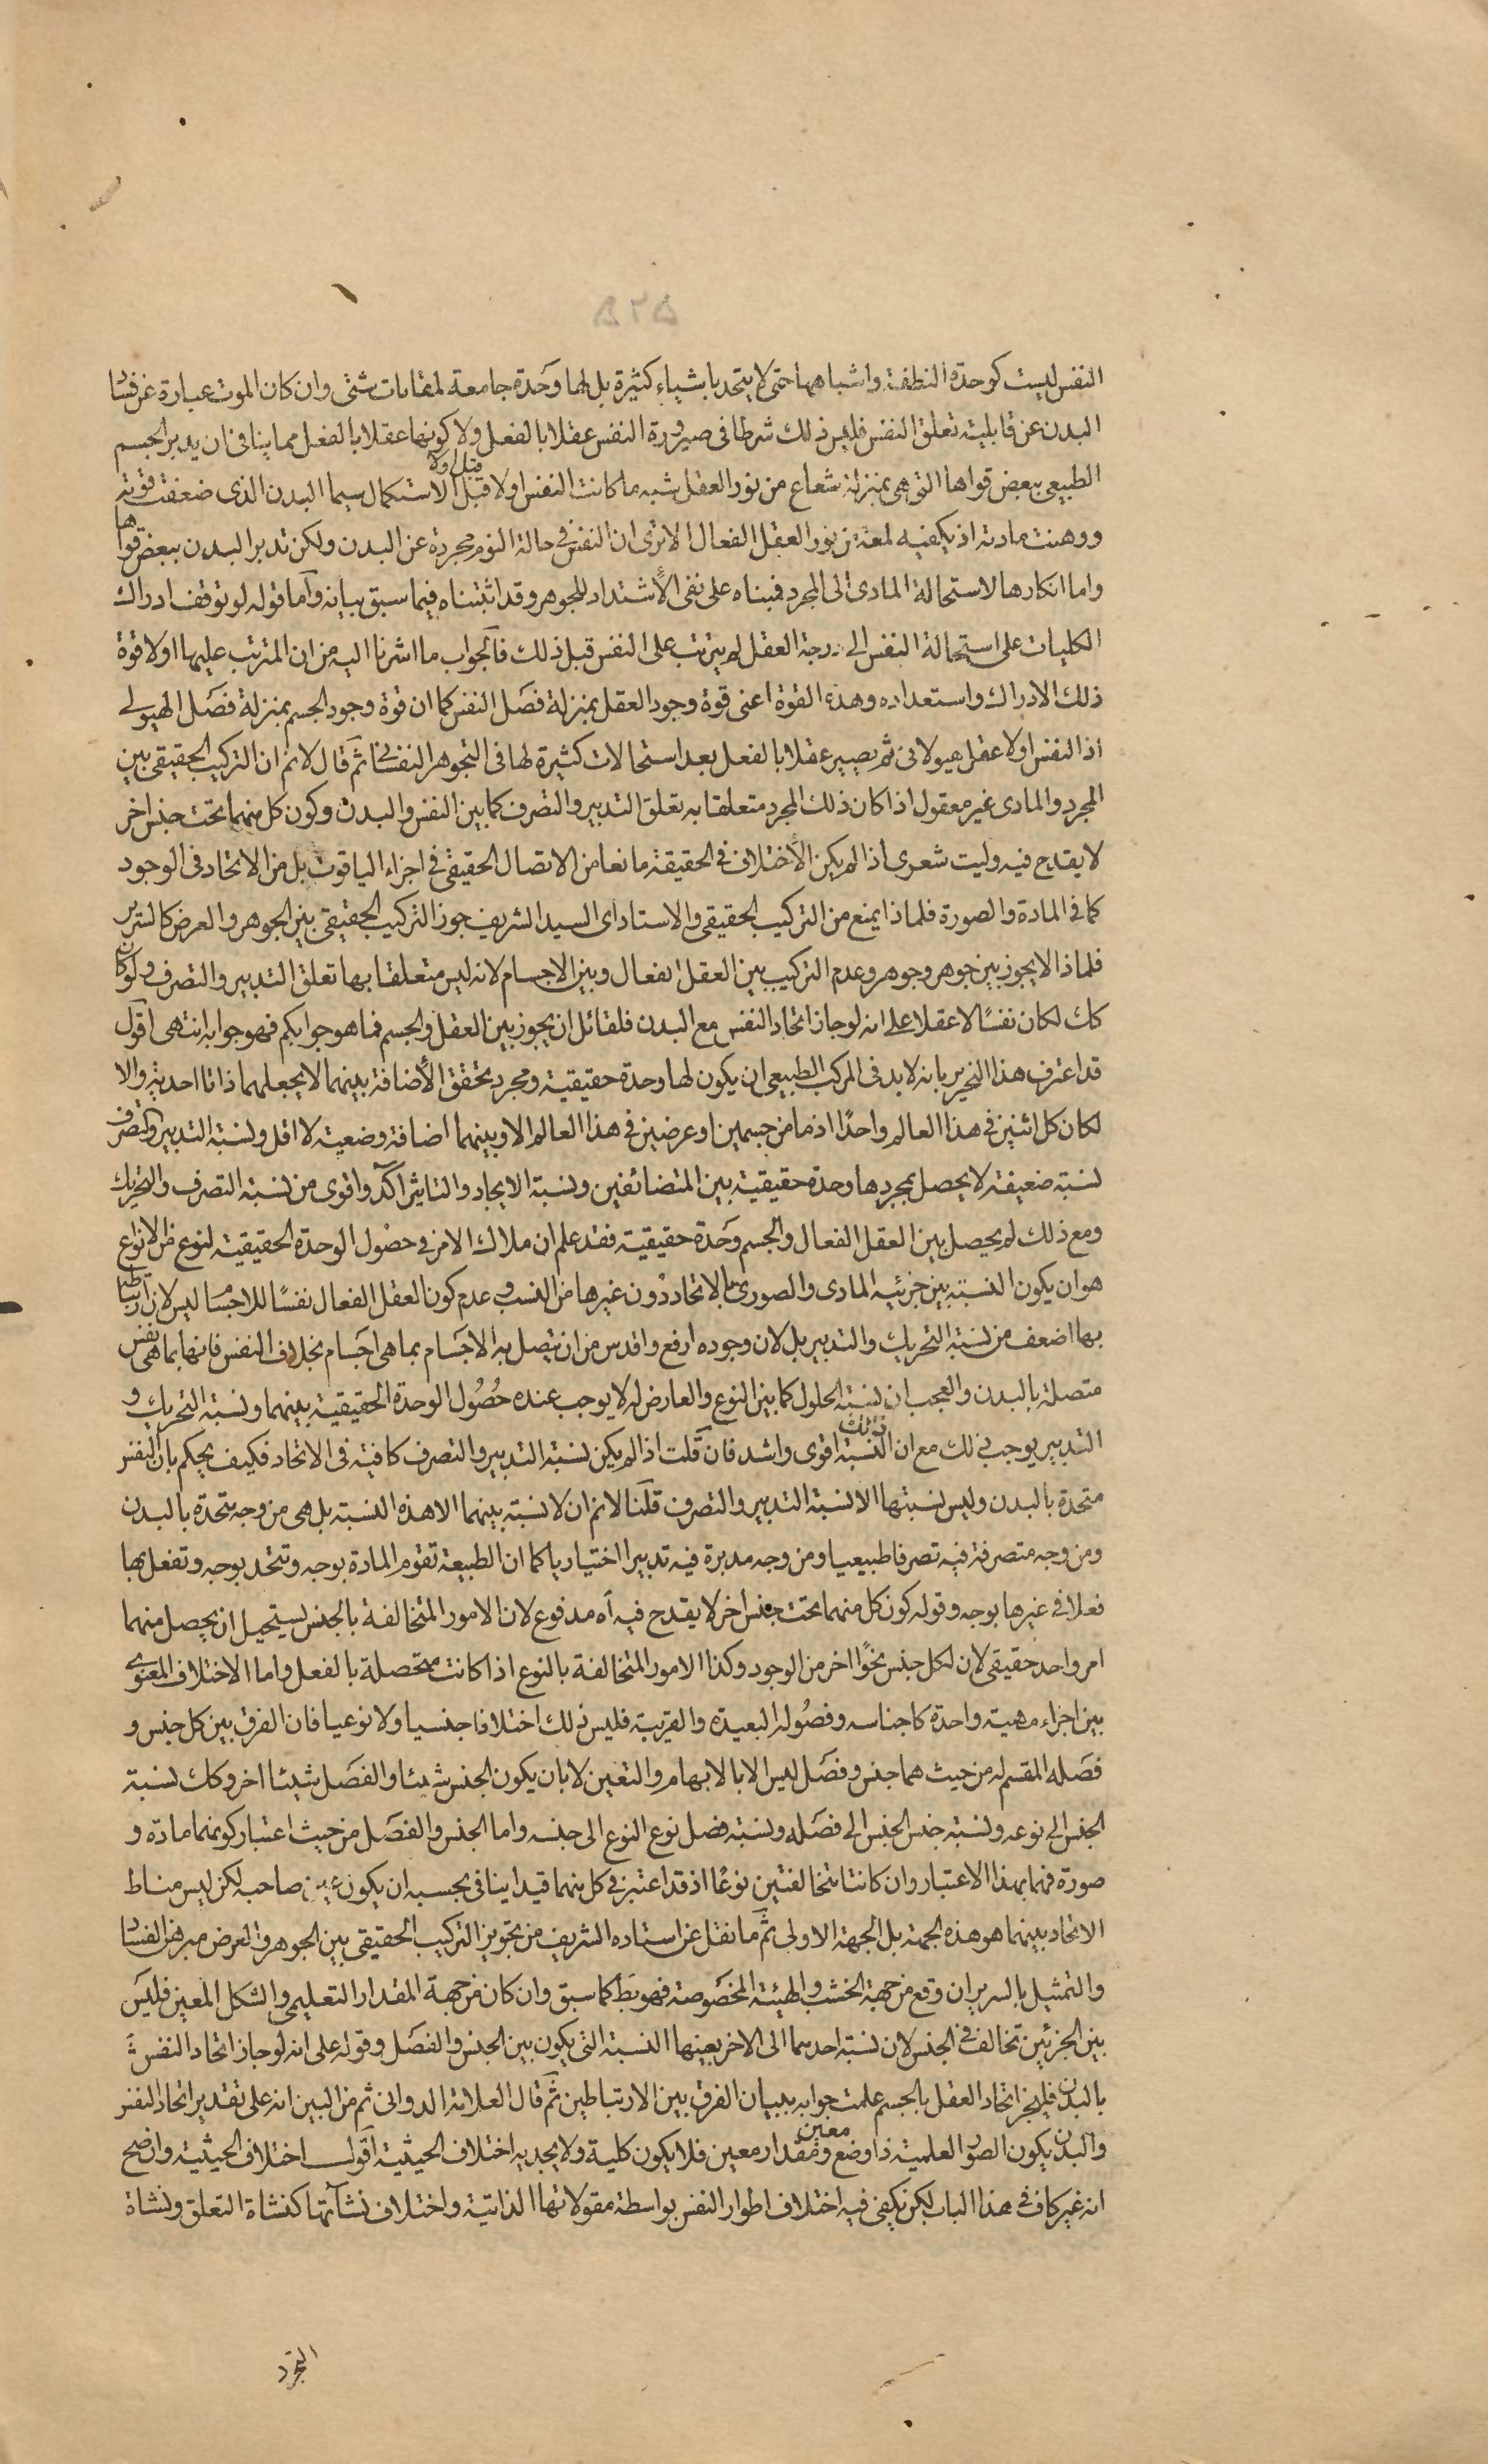 النفس ليست كوحدة النطفة واشباهها حتى لا يتحد باشياء كثيرة بل لها وحدة جامعة لمقامات شتى وان كان الموت عبارة عن فساد
البدن عن قابلية تعلق النفس فليس ذلك شرطا فى صيرورة النفس عقلا بالفعل ولا كونها عقلا بالفعل مما ينافى ان يدبر الجسم
الطبيعى ببعض قواها التى هى بمنزلة شعاع من نور العقل شبه ما كانت النفس اولا قبل الاستكمال سيما البدن الذى ضعفت قوته
ووهنت مادته اذ يكفيه لمعة من نور العقل الفعال الا ترى ان النفس فى حالة النوم مجردة عن البدن ولكن تدبر البدن ببعض قواها
واما انكارها لاستحالة المادى الى المجرد فبناه على نفى الاشتداد للجوهر وقد اثبتناه فيما سبق بيانه واما قوله لو توقف ادراك
الكليات على استحالة النفس الى درجة العقل لم يترتب على النفس قبل ذلك فالجواب ما اشرنا اليه من ان المترتب عليها اولا قوة
ذلك الادراك واستعداده وهذه القوة اعنى قوة وجود العقل بمنزلة فصل النفس كما ان قوة وجود الجسم بمنزلة فصل الهيولى
اذ النفس اولا عقل هيولانى ثم يصير عقلا بالفعل بعد استحالات كثيرة لها فى التجوهر النفسانى ثم قال لا نم ان التركيب الحقيقى بين
المجرد والمادى غير معقول اذا كان ذلك المجرد متعلقا به تعلق التدبير والتصرف كما بين النفس والبدن وكون كل منهما تحت جنس اخر
لا يقدح فيه وليت شعرى اذا لم يكن الاختلاف فى الحقيقة مانعا من الاتصال الحقيقى فى اجزاء الياقوت بل من الاتحاد فى الوجود
كما فى المادة والصورة فلماذا يمنع من التركيب الحقيقى والاستاد اى السيد الشريف جوز التركيب الحقيقى بين الجوهر والعرض كالسرير
فلماذا لا يجوز بين جوهر وجوهر وعدم التركيب بين العقل الفعال وبين الاجسام لانه ليس متعلقا بها تعلق التدبير والتصرف ولو كان
كك لكان نفسا لا عقلا على انه لو جاز اتحاد النفس مع البدن فلقائل ان يجوز بين العقل والجسم فما هو جوابكم فهو جوابه انتهى اقول
قد اعترف هذا النحرير بانه لا بد فى المركب الطبيعى ان يكون لها وحدة حقيقية ومجرد تحقق الاضافة بينهما لا يجعلهما ذاتا احدية والا
لكان كل اثنين فى هذا العالم واحدا اذ ما من جسمين او عرضين فى هذا العالم الا وبينهما اضافة وضعية لا اقل ونسبة التدبير والتصرف
نسبة ضعيفة لا يحصل بمجردها وحدة حقيقية بين المتضائفين ونسبة الايجاد والتاثير اكد واقوى من نسبة التصرف والتحريك
ومع ذلك لم يحصل بين العقل الفعال والجسم وحدة حقيقية فقد علم ان ملاك الامر فى حصول الوحدة الحقيقية لنوع من الانواع
هو ان يكون النسبة بين جزئيه المادى والصورى بالاتحاد دون غيرها من النسب وعدم كون العقل الفعال نفسا للاجسام ليس لان ارتباطه
بها اضعف من نسبة التحريك والتدبير بل لان وجوده ارفع واقدس من ان يتصل به الاجسام بما هى اجسام بخلاف النفس فانها بما هى نفس
متصلة بالبدن والعجب ان نسبة الحلول كما بين النوع والعارض له لا يوجب عنده حصول الوحدة الحقيقية بينهما ونسبة التحريك و
التدبير يوجب ذلك مع ان تلك النسبة اقوى واشد فان قلت اذا لم يكن نسبة التدبير والتصرف كافية فى الاتحاد فكيف يحكم بان النفس
متحدة بالبدن وليس نسبتها الا نسبة التدبير والتصرف قلنا لا نم ان لا نسبة بينهما الا هذه النسبة بل هى من وجه متحدة بالبدن
ومن وجه متصرفة فيه تصرفا طبيعيا ومن وجه مدبرة فيه تدبيرا اختياريا كما ان الطبيعة تقوم المادة بوجه وتتحد بوجه وتفعل بها
فعلا فى غيرها بوجه وقوله كون كل منهما تحت جنس اخر لا يقدح فيه اه مدفوع لان الامور المتخالفة بالجنس يستحيل ان يحصل منهما
امر واحد حقيقى لان لكل جنس نحوا اخر من الوجود وكذا الامور المتخالفة بالنوع اذا كانت متحصلة بالفعل واما الاختلاف المعنوى
بين اجزاء مهية واحدة كاجناسه وفصوله البعيدة والقريبة فليس ذلك اختلافا جنسيا ولا نوعيا فان الفرق بين كل جنس و
فصله المقسم له من حيث هما جنس وفصل ليس الا بالابهام والتعين لا بان يكون الجنس شيئا والفصل شيئا اخر وكك نسبة
الجنس الى نوعه ونسبة جنس الجنس الى فصله ونسبة فصل نوع النوع الى جنسه واما الجنس والفصل من حيث اعتبار كونهما مادة و
صورة فهما بهذا الاعتبار وان كانتا متخالفتين نوعا اذ قد اعتبر فى كل منهما قيد اينافى بحسبه ان يكون عين صاحبه لكن ليس مناط
الاتحاد بينهما هو هذه الجهة بل الجهة الاولى ثم ما نقل عن استاده الشريف من تجويز التركيب الحقيقى بين الجوهر والعرض مبرهن الفساد
والتمثيل بالسرير ان وقع من جهة الخشب والهيئة المخصوصة فهو بط كما سبق وان كان من جهة المقدار التعليمى والشكل المعين فليس
بين الجزئين تخالف فى الجنس لان نسبة احدهما الى الاخر بعينها النسبة التى يكون بين الجنس والفصل وقوله على انه لو جاز اتحاد النفس
بالبدن فليجز اتحاد العقل بالجسم علمت جوابه ببيان الفرق بين الارتباطين ثم قال العلامة الدوانى ثم من البين انه على تقدير اتحاد النفس
والبدن يكون الصور العلمية ذا وضع معين ومقدار معين فلا يكون كلية ولا يجديه اختلاف الحيثية اقول اختلاف الحيثية واضح
انه غير كاف فى هذا الباب لكن يكفى فيه اختلاف اطوار النفس بواسطة مقولاتها الذاتية واختلاف نشآتها كنشاة التعلق ونشاة
التجرد